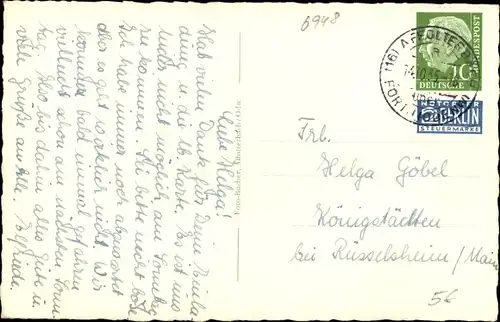 6948
Liebe Helga!
Hab vielen Dank für Deine Einla-
dung u. die lb. Karte. Es ist uns
leider nicht möglich am Sonntag
zu kommen. Sei bitte nicht böse
Ich habe immer noch abgewartet
aber es geht wirklich nicht. Wir
kommen bald einmal gestern
vielleicht schon am nächsten Sonn-
tag. Also bis dahin alles Gute u.
viele Grüße an Alle.
(16)
14.10.55
10
DEUTSCHE
BUNDESPOST
NOTOPFER
2 BERLIN
STEUERMARKE
Frl.
Helga Göbel
Königstädten
bei Rüsselsheim/Main
5€